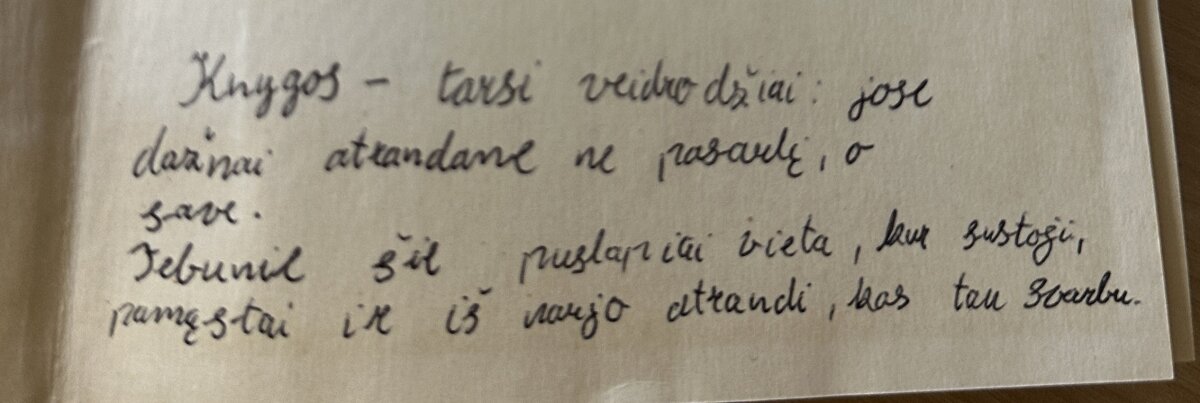 Knygos – tarsi veidrodžiai: jose
dažnai atrandame ne pasaulį, o
save.
Tebūnie šie puslapiai vieta, kur sustoji,
pamąstai ir iš naujo atrandi, kas tau svarbu.